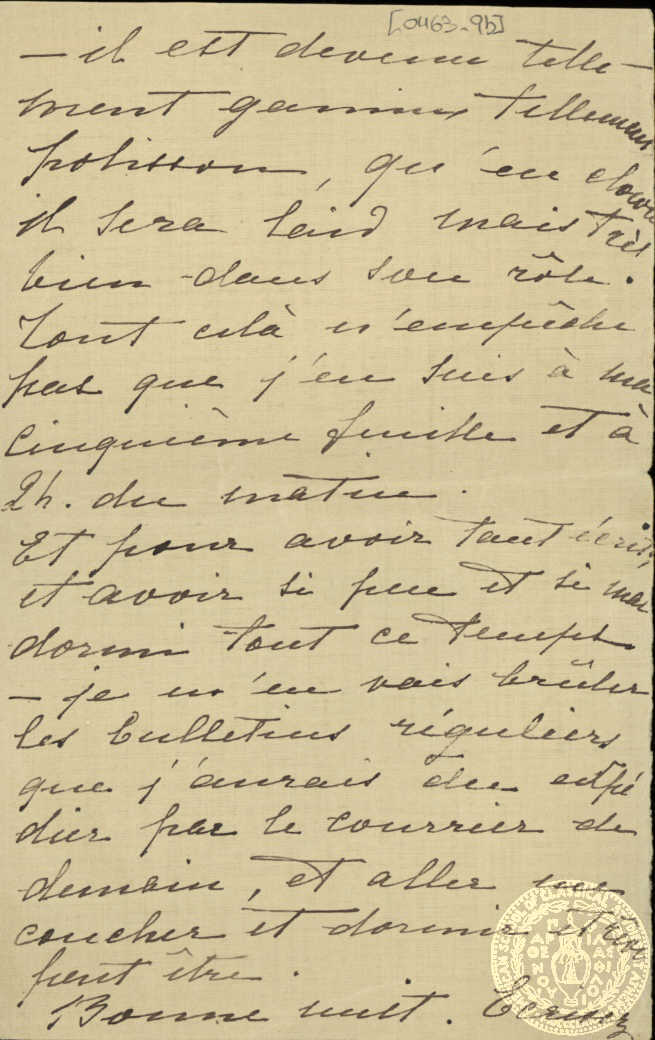 [.0463-9b]
— il est devenu telle-
ment gamin, tellement
polisson, qu'en clown
il sera laid mais très
bien dans son rôle.
Tout celà n'empêche
pas que j'en suis à ma
cinquième feuille et à
2h. du matin.
Et pour avoir tant écrit,
et avoir si peu et si mal
dormi tout ce temps
— je m'en vais brûler
les bulletins réguliers
que j'aurais du expé
dier par le courrier de
demain, et aller me
coucher et dormir et
peut être.
Bonne nuit. Ecrivez